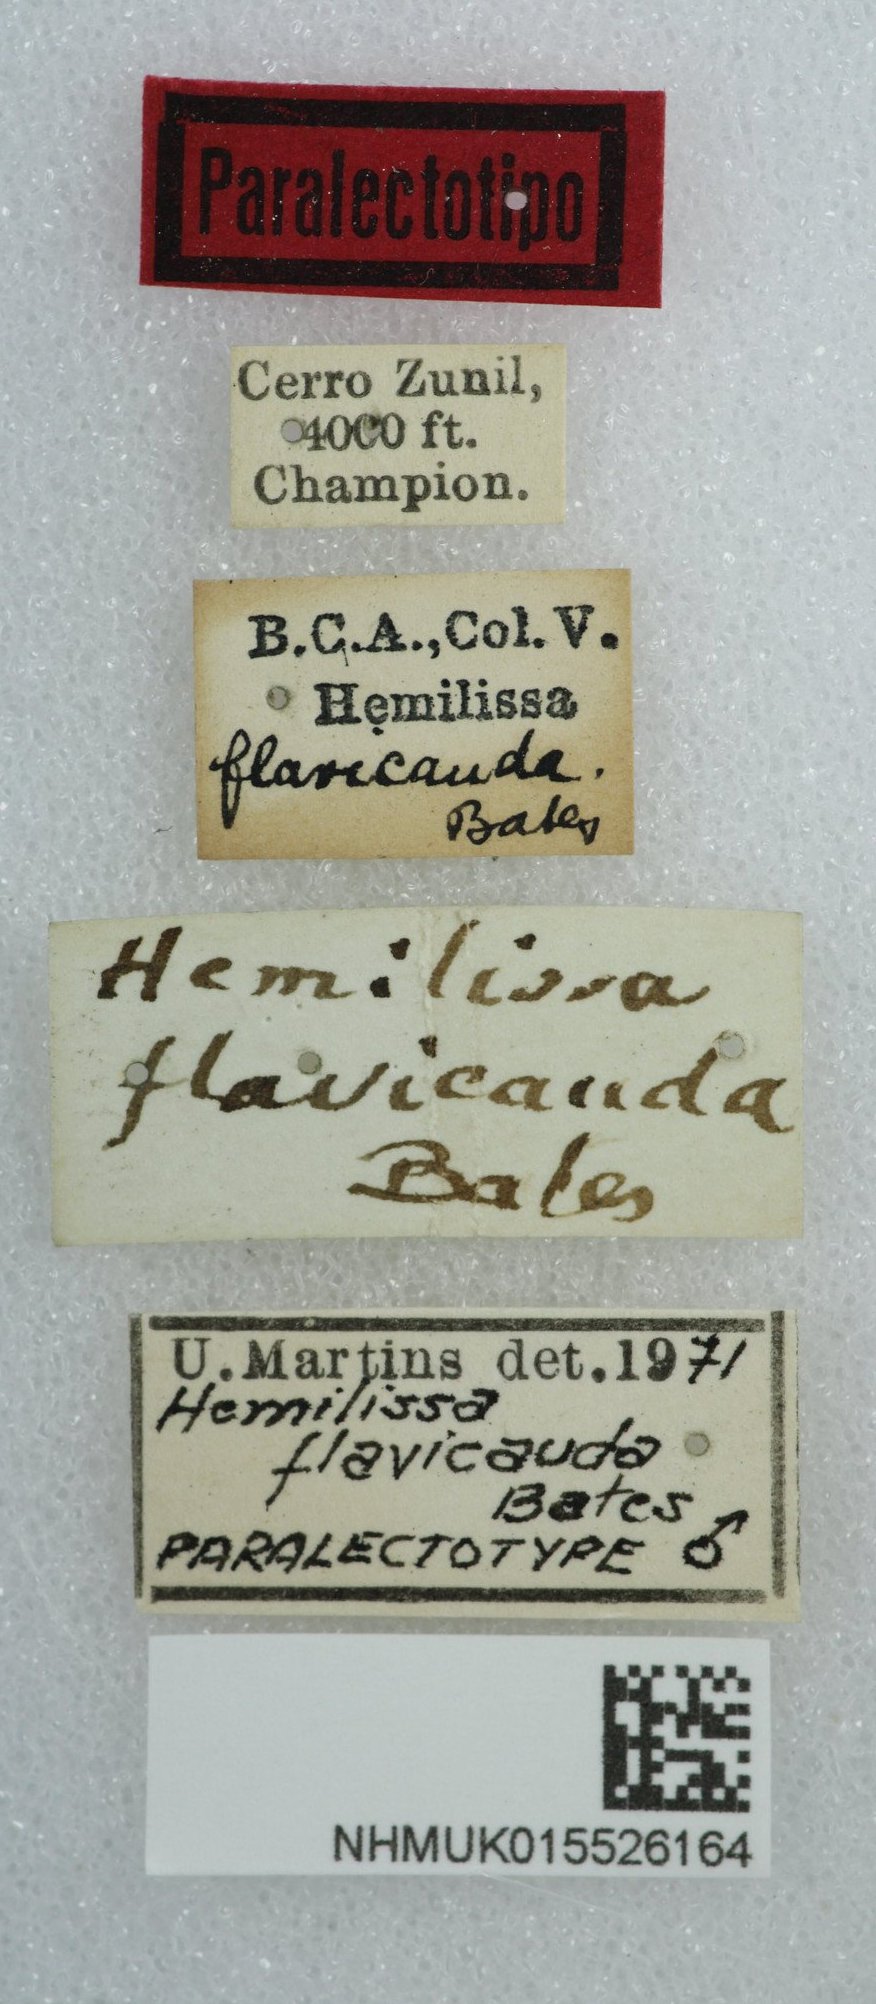 Paralectotipo
Cerro Zunil,
4000 ft.
Champion.
B.C.A., Col. V.
Hemilissa
flavicauda.
Bates
Hemilissa
flavicauda
Bates
U. Martins det. 1971
Hemilissa
flavicauda
Bates
PARALECTOTYPE ♂
NHMUK015526164